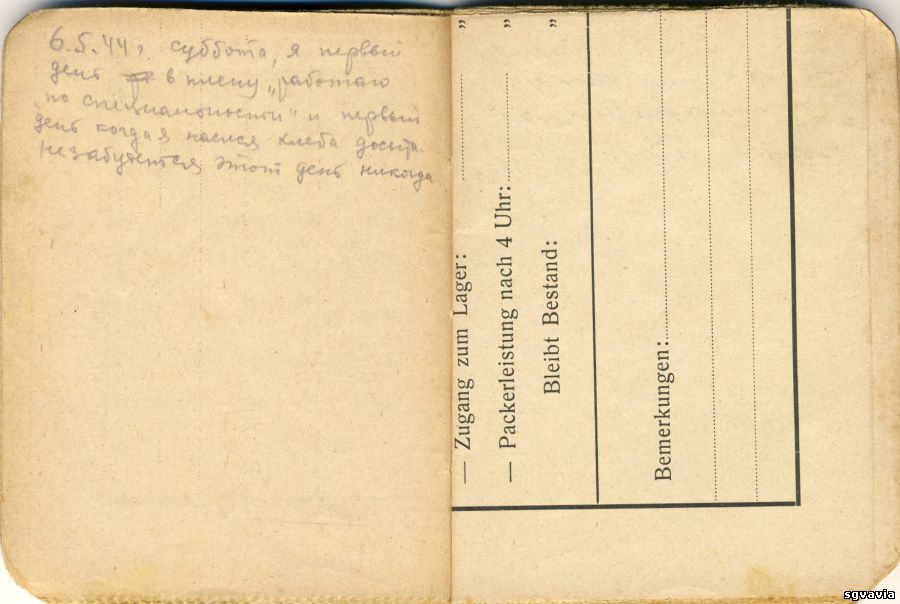 6.5.44г. суббота, я первый
день в плену „работаю
„по специальности" и первый
день когда я наелся хлеба досыта.
Незабудется этот день никогда
— Zugang zum Lager: "
— Packerleistung nach 4 Uhr: "
Bleibt Bestand: "
Bemerkungen:
sgvavia